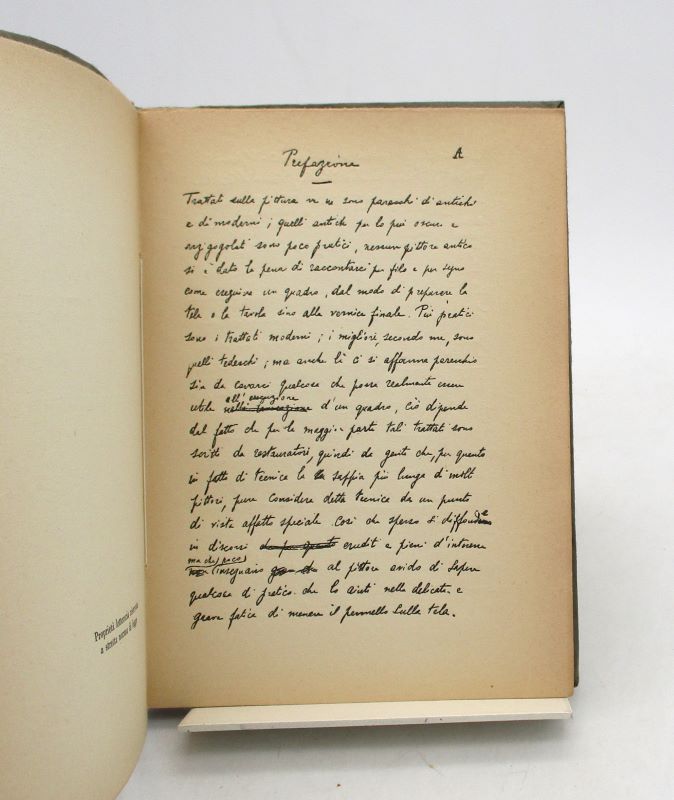 Proprietà letteraria riservata
a stretta norma di legge
Prefazione
A
Trattati sulla pittura ve ne sono parecchi d'antichi
e di moderni; quelli antichi per lo più oscuri e
arzigogolati sono poco pratici, nessun pittore antico
si è dato la pena di raccontarci per filo e per segno
come eseguiva un quadro, dal modo di preparare la
tela o la tavola sino alla vernice finale. Più pratici
sono i trattati moderni; i migliori, secondo me, sono
quelli tedeschi; ma anche lì ci si affanna parecchio
sia da cavarci qualcosa che possa realmente essere
all'esecuzione
utile nella lavorazione d'un quadro, ciò dipende
dal fatto che per la maggior parte tali trattati sono
scritti da restauratori, quindi da gente che, per quanto
in fatto di tecnica la sappia più lunga di molti
pittori, pure considera detta tecnica da un punto
di vista affatto speciale. Così che spesso si diffonde
in discorsi eruditi e pieni d'interesse
ma che poco
insegnano al pittore avido di sapere
qualcosa di pratico che lo aiuti nella delicata e
grave fatica di menare il pennello sulla tela.